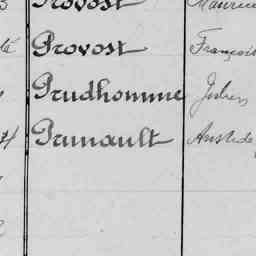 Provost Maurice
Provost François
Prudhomme Julien
Prunault Aristide